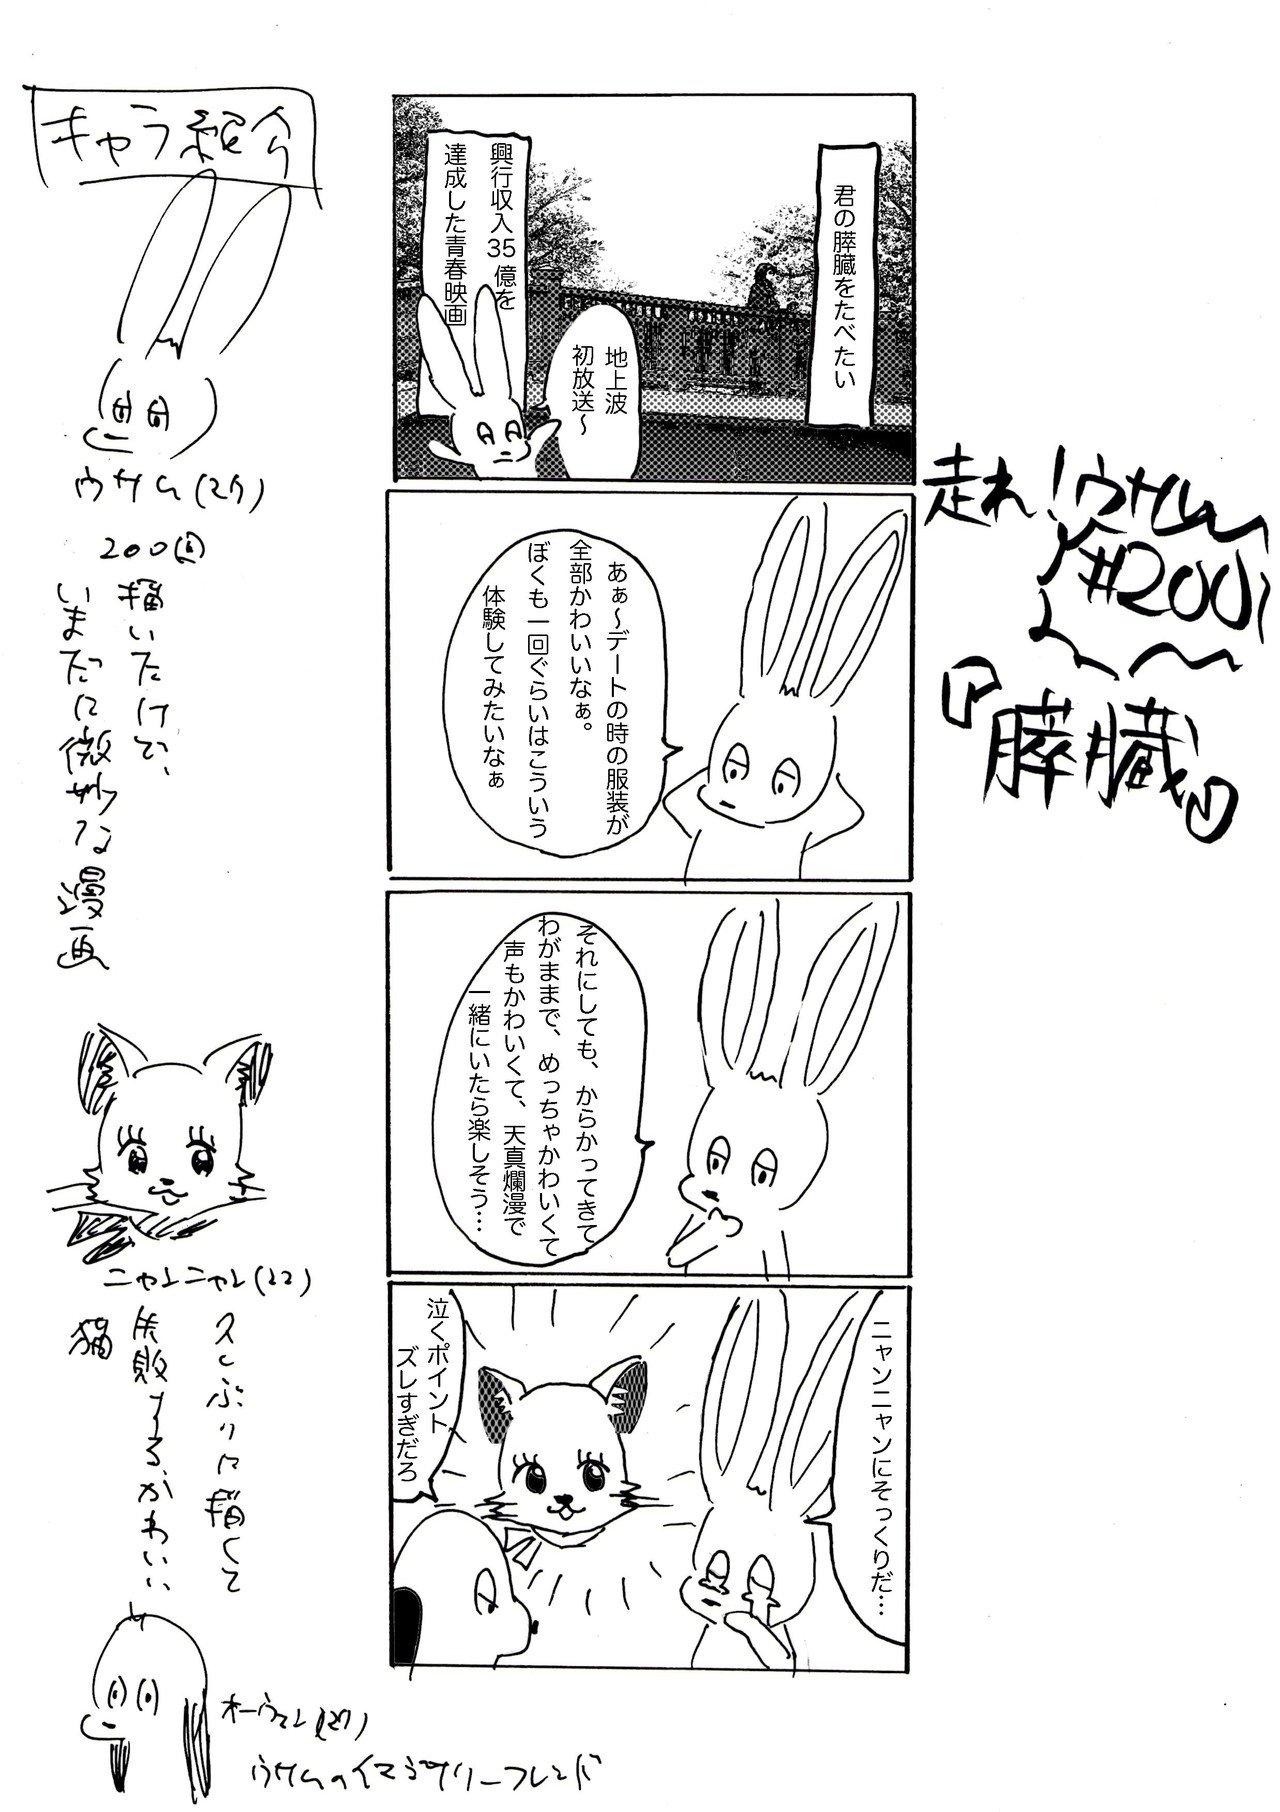 走れ!ウサム
#200
『膵臓』
君の膵臓をたべたい
興行収入35億を
達成した青春映画
地上波
初放送～
あぁ～デートの時の服装が
全部かわいいなぁ。
ぼくも一回ぐらいはこういう
体験してみたいなぁ
それにしても、からかってきて
わがままで、めっちゃかわいくて
声もかわいくて、天真爛漫で
一緒にいたら楽しそう…
ニャンニャンにそっくりだ…
泣くポイント
ズレすぎだろ
キャラ紹介
ウサム(27)
200回
描いたけど、
いまだに微妙な漫画
ニャンニャン(22)
久しぶりに描くと
失敗する、かわいい
猫
オーウェン(27)
ウサムのイマジナリーフレンド